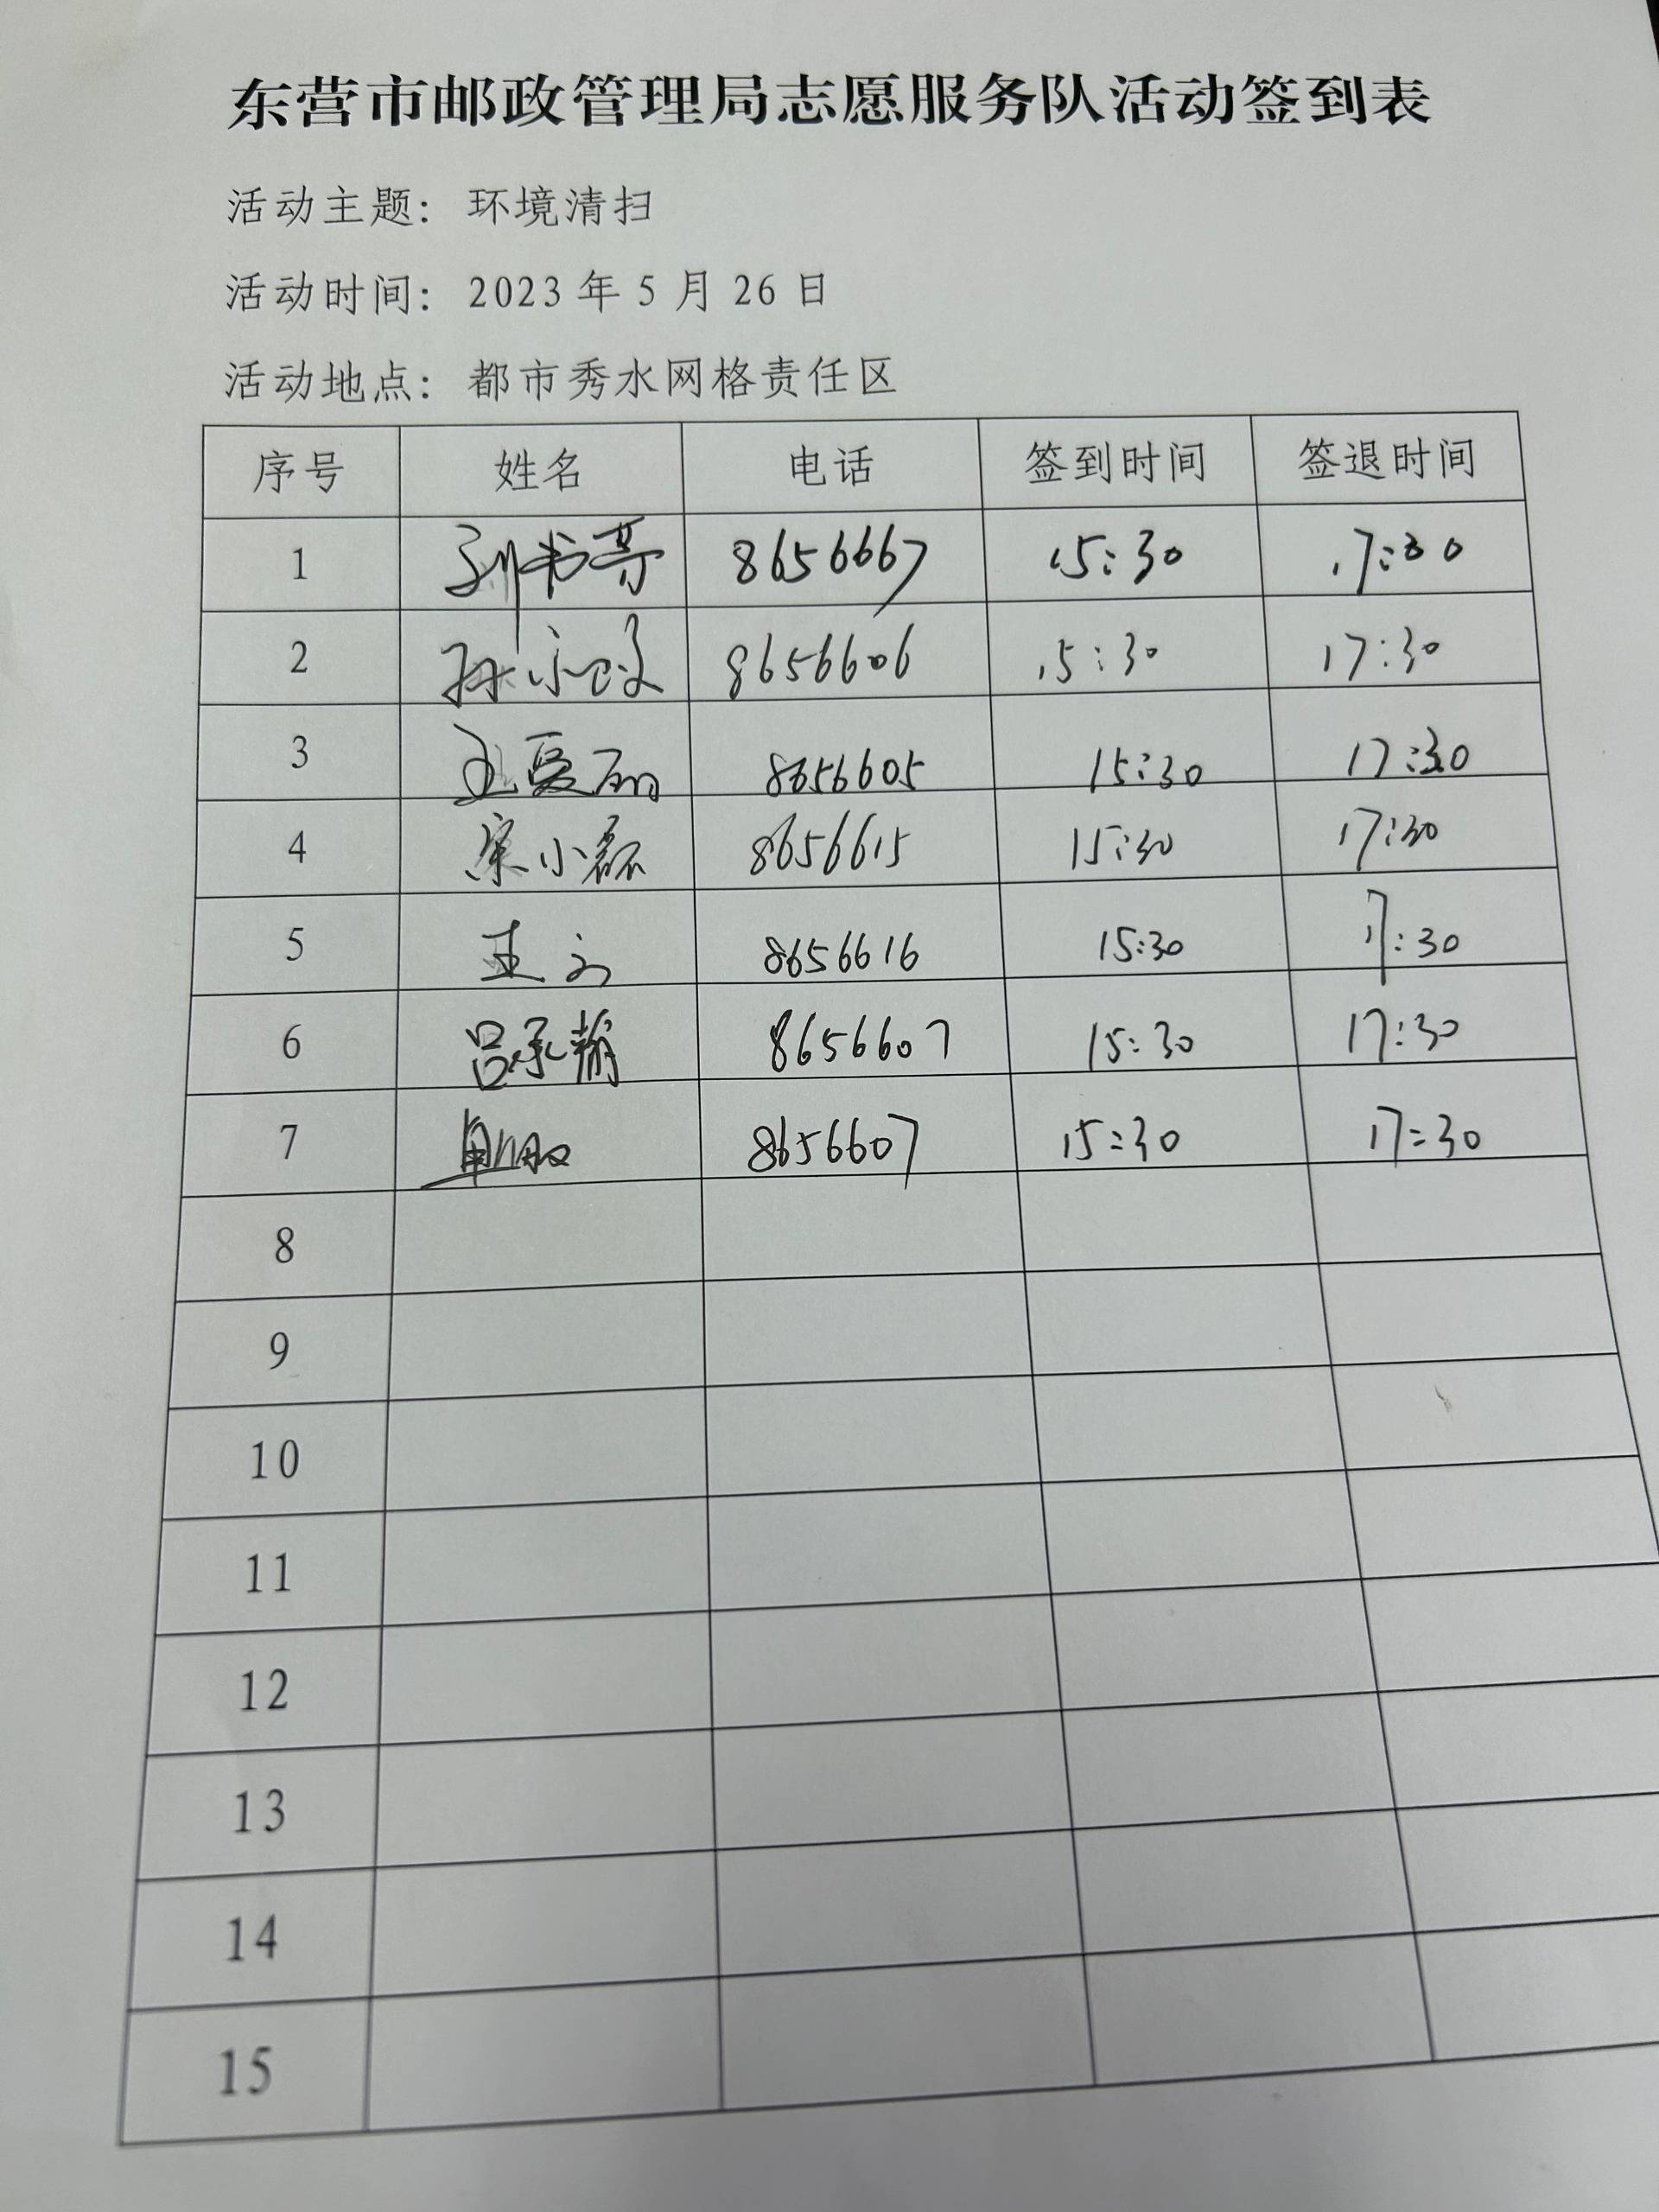 东营市邮政管理局志愿服务队活动签到表
活动主题： 环境清扫
活动时间： 2023 年 5 月 26 日
活动地点： 都市秀水网格责任区
序号 姓名 电话 签到时间 签退时间
1 8656667 15:30 17:30
2 8656606 15:30 17:30
3 王夏丽 8656605 15:30 17:30
4 宋小磊 8656615 15:30 17:30
5 王 8656616 15:30 17:30
6 吕承翰 8656607 15:30 17:30
7 8656607 15:30 17:30
8
9
10
11
12
13
14
15